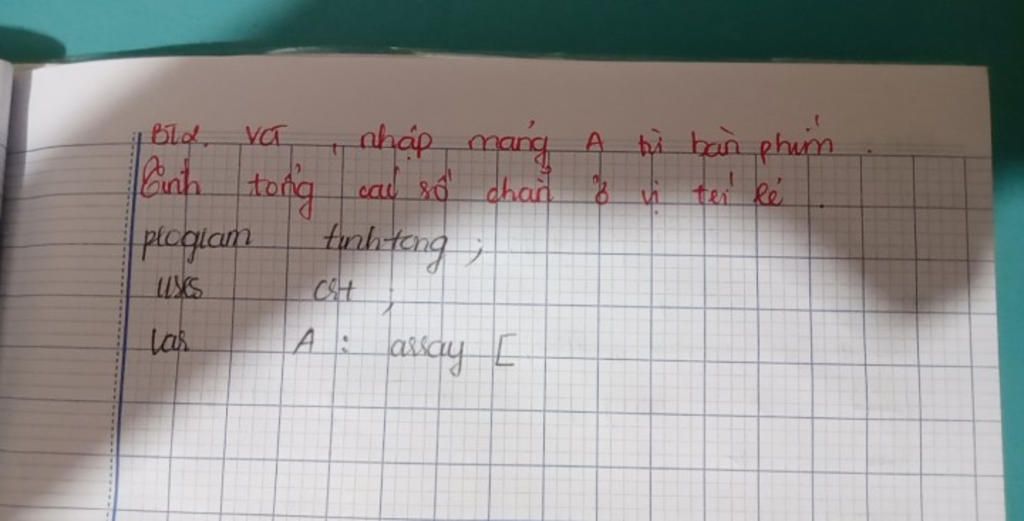 VCT, nhập mảng A từ bàn phím.
tính tổng các số chẵn ở vị trí lẻ.
program tinhtong;
uses crt;
var A: array [